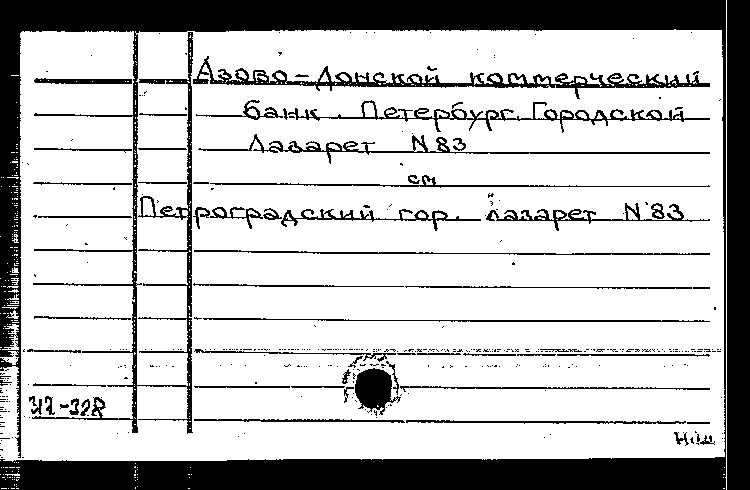 Азово-Донской коммерческий
банк. Петербург. Городской
лазарет N 83
см
Петроградский гор. лазарет N 83